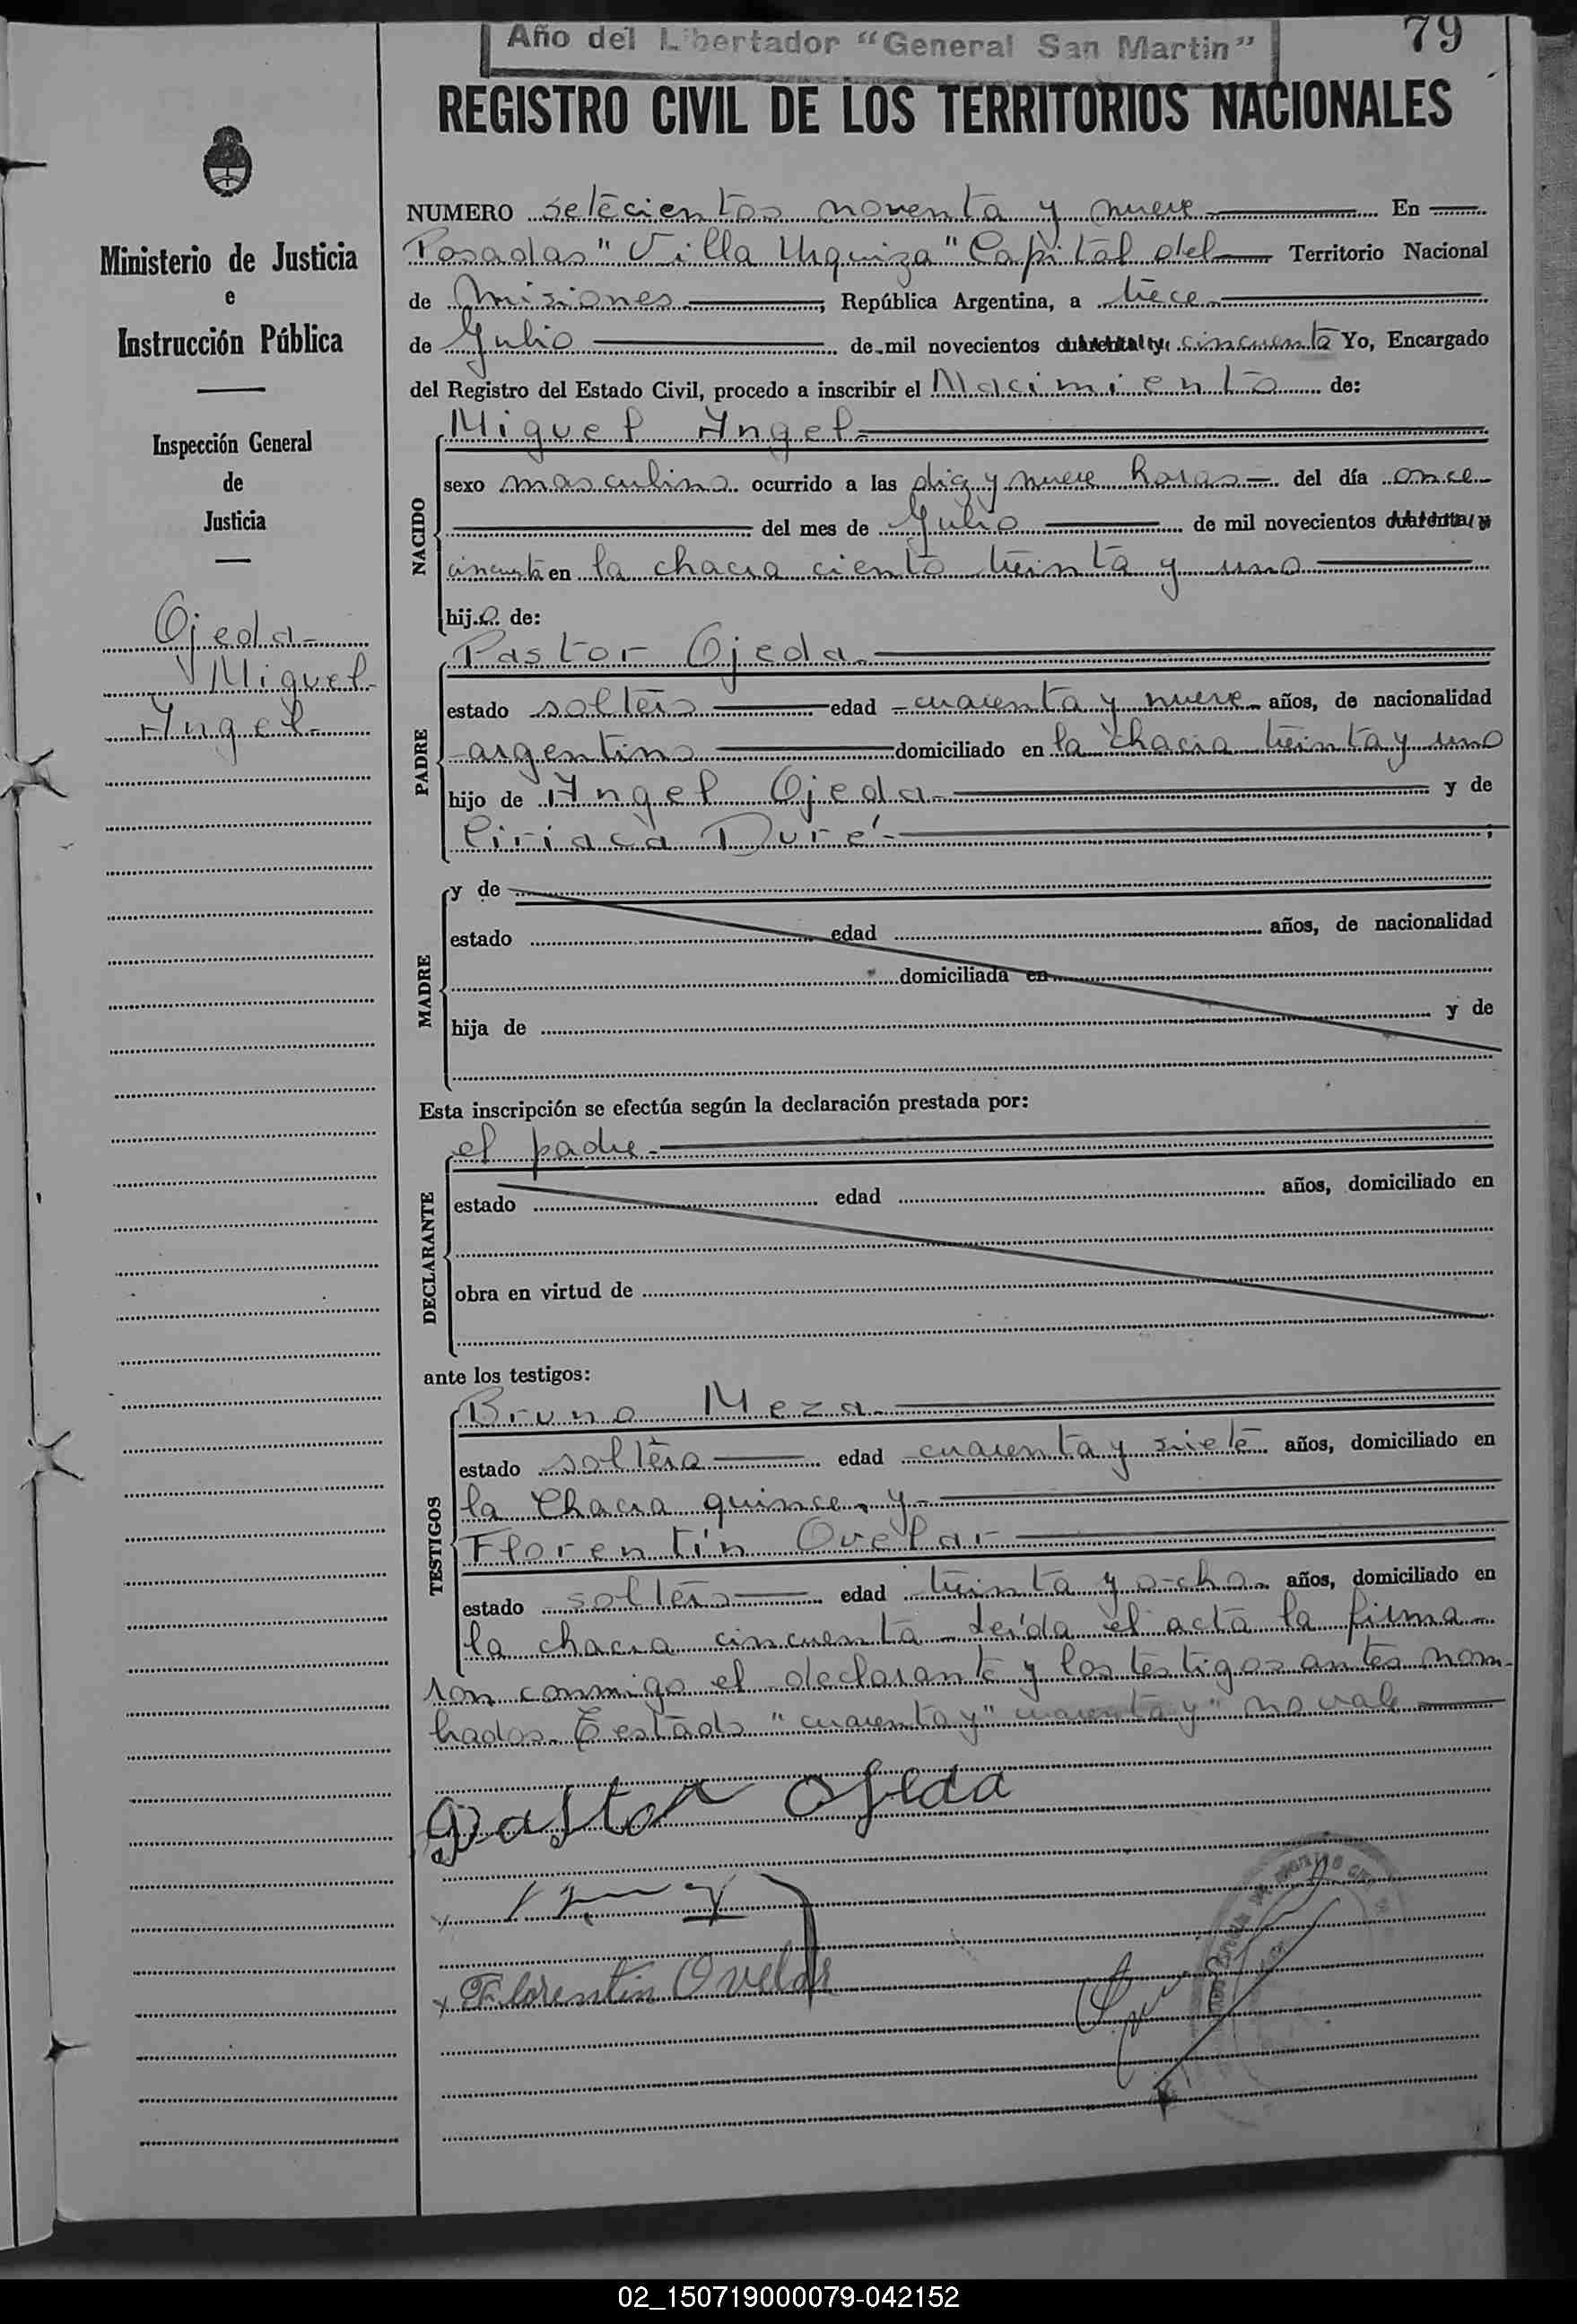 Año del Libertador "General San Martin"
79
REGISTRO CIVIL DE LOS TERRITORIOS NACIONALES
Ministerio de Justicia
e
Instrucción Pública
Inspección General
de
Justicia
Ojeda
Miguel
Angel
NUMERO setecientos noventa y nueve En
Posadas "Villa Urquiza" Capital del Territorio Nacional
de Misiones, República Argentina, a trece
de Julio de mil novecientos cuarenta y cincuenta Yo, Encargado
del Registro del Estado Civil, procedo a inscribir el Nacimiento de:
NACIDO
Miguel Angel
sexo masculino ocurrido a las diez y nueve horas del día once
del mes de Julio de mil novecientos cuarenta y
cincuenta en la chacra ciento treinta y uno
hijo de:
PADRE
Pastor Ojeda
estado soltero edad cuarenta y nueve años, de nacionalidad
argentino domiciliado en la chacra treinta y uno
hijo de Angel Ojeda y de
Ciriaca Duré;
MADRE
y de
estado edad años, de nacionalidad
domiciliada en
hija de y de
Esta inscripción se efectúa según la declaración prestada por:
DECLARANTE
el padre
estado edad años, domiciliado en
obra en virtud de
ante los testigos:
TESTIGOS
Bruno Meza
estado soltero edad cuarenta y siete años, domiciliado en
la Chacra quince y
Florentín Ovelar
estado soltero edad treinta y ocho años, domiciliado en
la chacra cincuenta Leída el acta la firma
ron conmigo el declarante y los testigos antes nom
brados. Testado "cuarenta y" "cuarenta y" no vale
Pastor Ojeda
x
x Florentin Ovelar
02_150719000079-042152